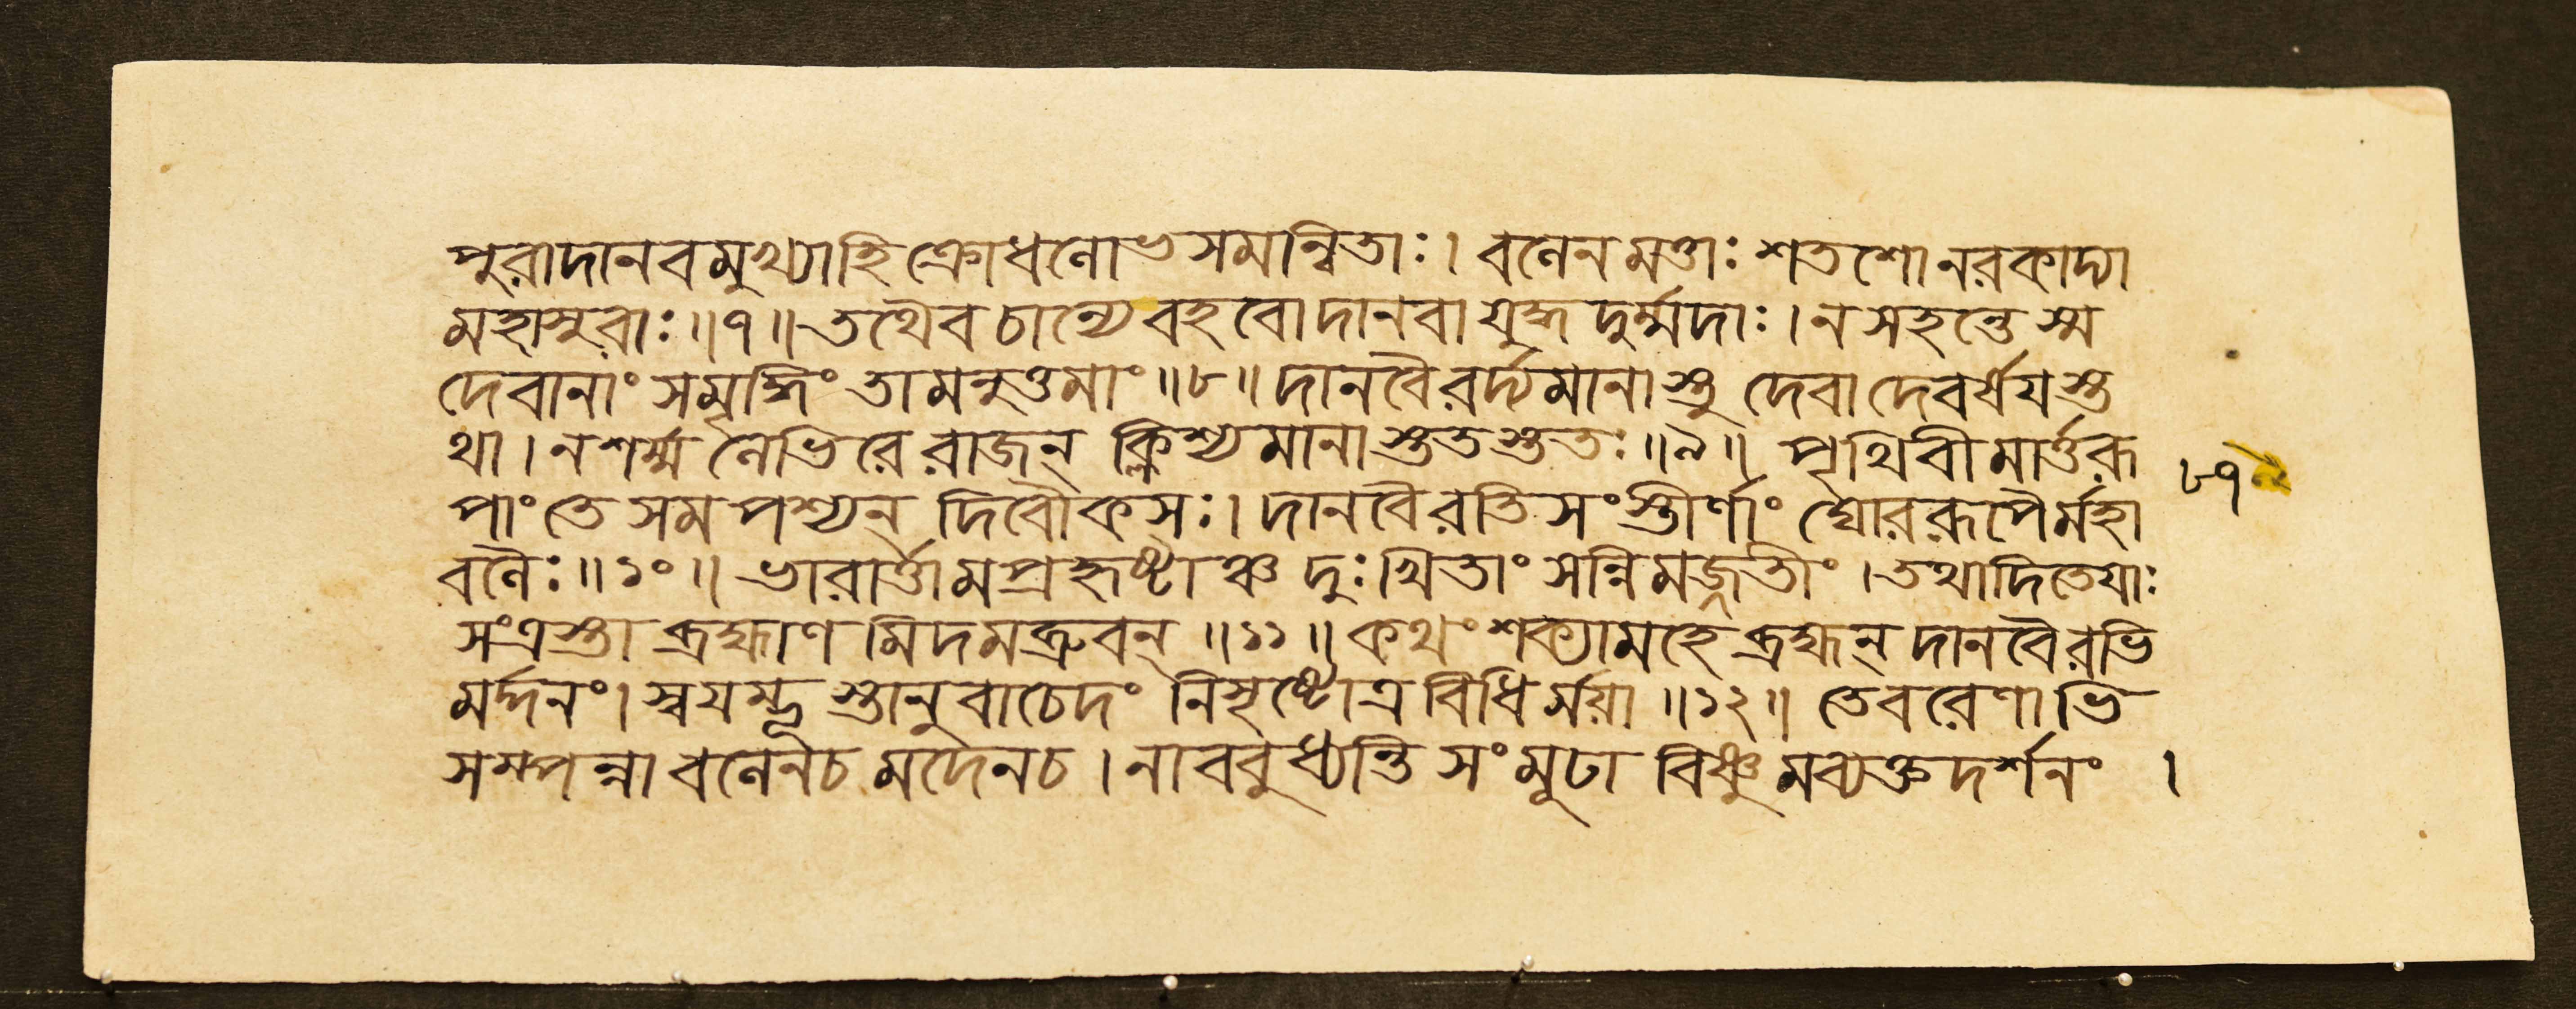 পুরাদানবমুখ্যাহিক্রোধলোভসমান্বিতাঃ। বলেনমত্তাঃ শতশোনরকাদ্যা
মহাসুরাঃ॥৭॥তথৈবচান্যেবহবোদানবাযুদ্ধদুর্ম্মদাঃ।নসহন্তেস্ম
দেবানাং সমৃদ্ধিং তামনুত্তমাং॥৮॥দানবৈরর্দ্যমানাস্তু দেবাদেবর্ষযস্ত
থা।নশর্ম্ম লেভিরে রাজন্ ক্লিশ্যমানাস্ততস্ততঃ॥৯॥ পৃথিবীমার্ত্তরূ
পাং তে সমপশ্যন্ দিবৌকসঃ। দানবৈরভিসংস্তীর্ণাং ঘোররূপৈর্মহা
বলৈঃ॥১০॥ ভারার্ত্তামপ্রহৃষ্টাঞ্চ দুঃখিতাং সন্নিমজ্জতীং।তথাদিতেযাঃ
সংত্রস্তা ব্রহ্মাণমিদমব্রুবন্॥১১॥কথং শক্যামহে ব্রহ্মন্ দানবৈরভি
মর্দ্দনং। স্বযম্ভূস্তানুবাচেদং নিসৃষ্টোত্রবিধির্ময়া॥১২॥ তেবরেণাভি
সম্পন্নাবলেনচমদেনচ।নাববুধ্যন্তি সংমূঢা বিষ্ণুমব্যক্তদর্শনং।
৮৭